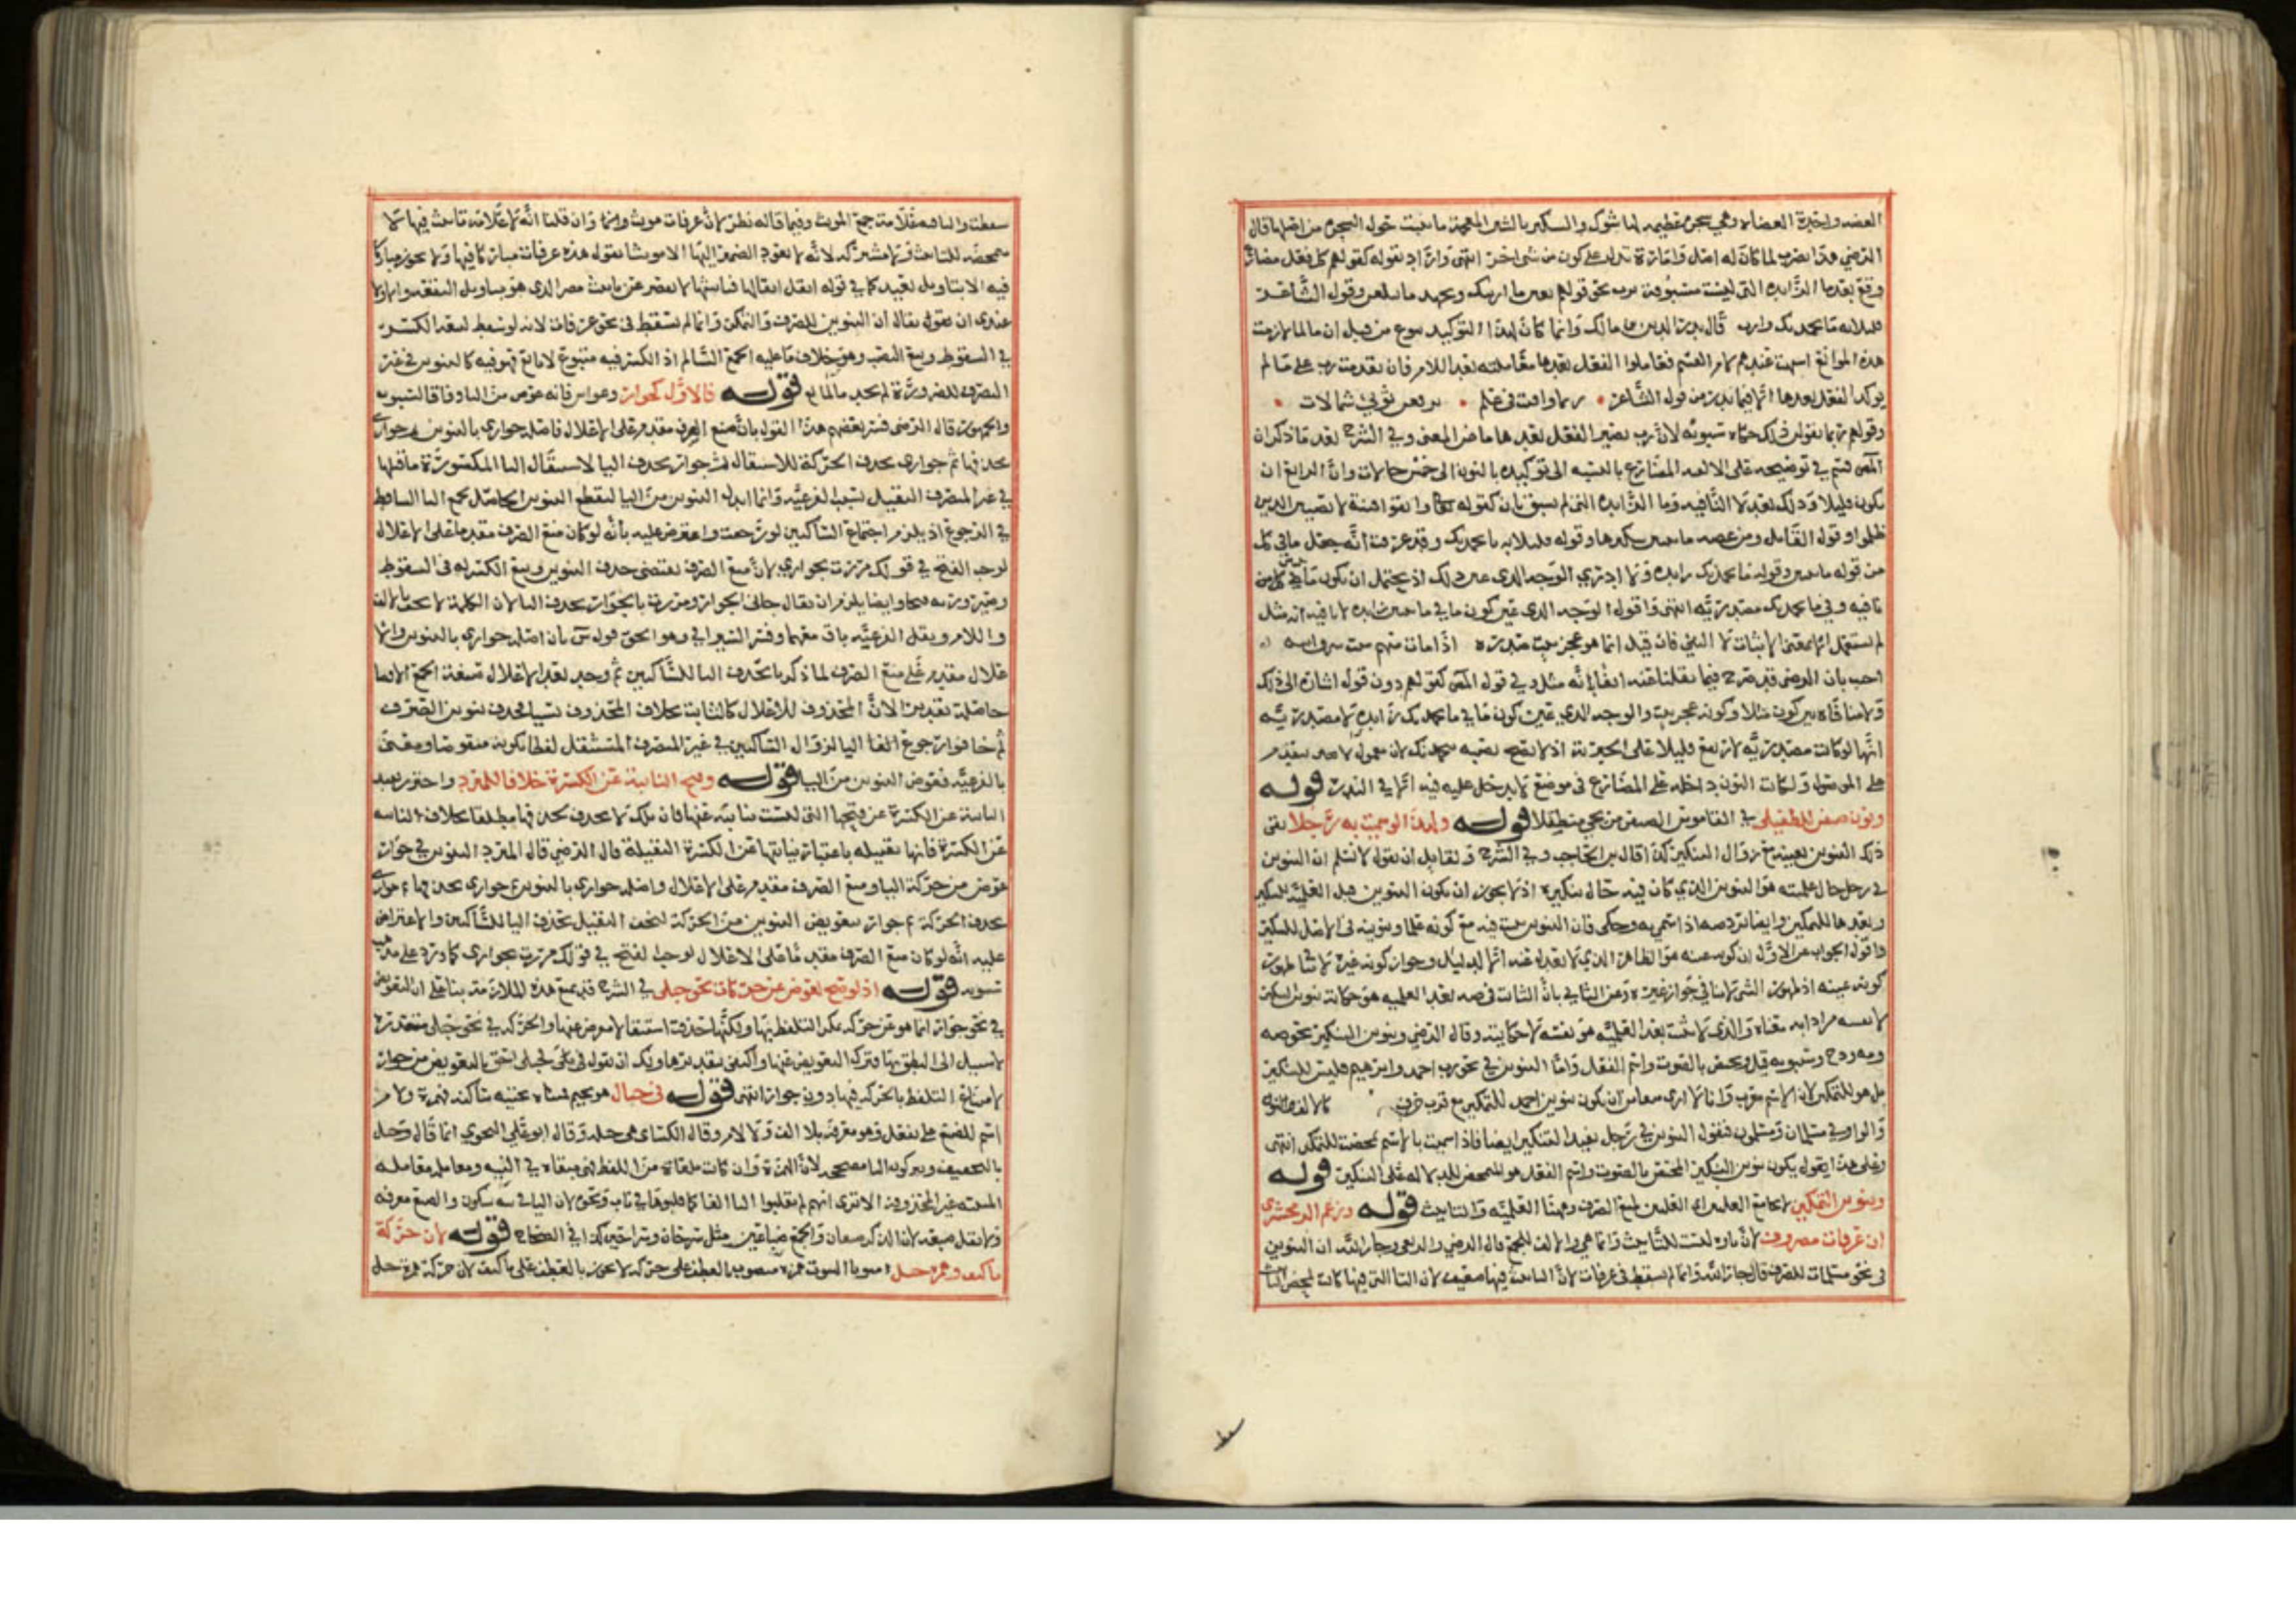 العضه واحدة العضاه وهي شجر عظيم له شوك والسكير بالشين المعجمة ما ينبت حول الشجرة من اصلها قال
الرضي وهذا يضرب لما كان له اصل وامارة تدل على كون من شئ اخر انتهى واراد بقوله كقولهم كل فعل مضارع
وقع بعد ما الزايدة التي ليست مسبوقة برب نحو قولهم بعين ما ارينك وبجهد ما تبلغن وقول الشاعر
قليلا به ما يحمدنك وارث قال بدر الدين بن مالك وانما كان لهذا التوكيد شيوع من قبل ان ما لما لازمت
هذه المواضع اشبهت عندهم لام القسم فعاملوا الفعل بعدها معاملته بعد اللام فان تقدمت رب على ما لم
يوكد الفعل بعدها الا فيما ندر من قول الشاعر ربما اوفيت في علم ترفعن ثوبي شمالات
وقولهم ربما يقولن ذلك حكاه سيبويه لان رب تصير الفعل بعدها ماضي المعنى وفي الشرح بعد ما ذكر ان
المص قسم في توضيحه على الالفية المضارع بالنسبة الى توكيده بالنون الى خمس حالات وان الرابع ان
يكون قليلا وذلك بعد لا النافية وما الزايدة التي لم تسبق بان كقوله تعالى واتقوا فتنة لا تصيبن الذين
ظلموا وقول القايل ومن عضه ما ينبتن شكيرها وقوله قليلا به ما يحمدنك وقد عرفت انه جعل ما في كل
من قوله ما ينبتن وقوله ما يحمدنك زايدة ولا ادري الوجه الذي عين ذلك اذ يحتمل ان يكون ما في كل من
نافيه وفي ما يحمدنك مصدرية انتهى واقول الوجه الذي عين كون ما في ما ينبتن زايدة لا نافيه انه مثل
لم يستعمل الا بمعنى الاثبات لا النفي فان قيل انما هو عجز بيت صدره اذا مات منهم ميت سرق ابنه
اجيب بان الرضي قد صرح فيما نقلنا عنه انفا بانه مثل وفي قول المص كقولهم دون قول اشارة الى ذلك
ولا منافاة بين كون مثلا وكونه عجز بيت والوجه الذي عين كون ما في ما يحمدنك زايدة لا مصدرية
انها لو كانت مصدرية لارتفع قليلا على الخبرية اذ لا يصح نصبه بيحمدنك لان معمول لا يتقدم
على الموصول ولكانت النون داخلة على المضارع في موضع لا يدخل عليه فيه الا في الندرة قوله
ونون ضيفن للطفيلي في القاموس الضيفن من يجي متطفلا قوله ولهذا لو سميت به رجلا بقي
ذلك التنوين بعينه مع زوال التنكير كذا قال ابن الحاجب وفي الشرح ولقايل ان يقول لا نسلم ان التنوين
في رجل حال علميته هو التنوين الذي كان فيه حال تنكيره اذ لا يجوز ان يكون التنوين قبل العلمية للتنكير
وبعدها للتمكين وايضا نرد صه اذا سمي به وحكى فان التنوين يثبت فيه مع كونه علما وتنوينه في الاصل للتنكير
واقول الجواب عن الاول ان كونه عينه هو الظاهر الذي لا يعدل عنه الا لدليل وجواز كونه غيره لا ينافي ظهور
كونه عينه اذ ظهور الشي لا ينافي جواز غيره وعن الثاني بان الثابت في صه بعد العلمية هو حكاية تنوين التنكير
لا نفسه مرادا به معناه والذي لا يثبت بعد العلمية هو نفسه لا حكايته وقال الرضي وتنوين التنكير نحو صه
ومه ودج وسيبويه قيل ويختص بالصوت واسم الفعل واما التنوين في نحو رب احمد وابراهيم فليس للتنكير
بل هو للتمكين لان الاسم معرب وانا لا ارى منعا من ان يكون تنوين احمد للتمكين مع قرب ظرفي كالالف والنون
والواو في مسلمان ومسلمون فنقول التنوين في رجل يفيد التنكير ايضا فاذا سميت بالاسم تمحضت للتمكن انتهى
وعلى هذا يقول يكون تنوين التنكير المختص بالصوت واسم الفعل هو المتمحض للدلالة على التنكير قوله
وتنوين التمكين لا يجامع العلتين اي العلتين لمنع الصرف وهما العلمية والتانيث قوله وزعم الزمخشري
ان عرفات مصروف لان تاءه ليست للتانيث وانما هي والالف للجمع قال الرضي والربعي وجار الله ان التنوين
في نحو مسلمات للصرف قال جار الله وانما لم يسقط في عرفات لان التانيث فيها ضعيف لان التا التي فيها كانت لمحض التانيث
سقطت والتا فيه علامة جمع المونث وفيما قاله نظر لان عرفات مونث وانما وان قلنا انه لا علامة تانيث فيها لا
متمحضة للتانيث ولا مشتركة لانه لا يعود الضمير اليها الا مونثا نقول هذه عرفات مباركا فيها ولا يجوز مباركا
فيه الا بتاويل بعيد كما في قوله ابقل ابقالها فتانيثها لا يقصر عن تانيث مصر الذي هو بتاويل البقعة والاولى
عندي ان يقول يقال ان التنوين للصرف والتمكن وانما لم تسقط في نحو عرفات لانه لو سقط لتبعه الكسر
في السقوط وتبع النصب وهو خلاف ما عليه الجمع السالم اذ الكسر فيه متبوع لا تابع فهو فيه كالتنوين في غير
المنصرف للضرورة لم يحذف لمانع قوله فالاول كجوار وغواش فانه عوض من الياء وفاقا لسيبويه
والجمهور قال الرضي فسر بعضهم هذا القول بان منع الصرف مقدم على الاعلال فاصله جواري بالتنوين ثم جواري
بحذفها ثم جواري بحذف الحركة للاستثقال ثم جوار بحذف اليا لاستثقال اليا المكسورة ما قبلها
في غير المنصرف الثقيل بسبب الفرعية وانما ابدل التنوين من اليا ليقطع التنوين الحاصل طمع اليا الساقط
في الرجوع اذ يلزم اجتماع الساكنين لو رجعت واعترض عليه بانه لو كان منع الصرف مقدما على الاعلال
لوجب الفتح في قولك مررت بجواري لان منع الصرف يقتضي حذف التنوين وتبع الكسر له في السقوط
والام وثقل الفرعية باق معهما وفسر السيرافي وهو الحق قول س بان اصله جواري بالتنوين والا
علال مقدم على منع الصرف لما ذكرنا فحذف اليا للساكنين ثم وجد بعد الاعلال صيغة الجمع الاقصى
حاصلة تقديرا لان المحذوف للاعلال كالثابت بخلاف المحذوف نسيا فحذف تنوين الصرف
ثم خافوا رجوع اليا لزوال الساكنين في غير المنصرف المستثقل لفظا بكونه منقوصا ومعنى
بالفرعية فعوض التنوين من اليا قوله وفتح النايبة عن الكسرة خلافا للمبرد واحترز بقيد
النايبة عن الكسرة عن فتحها التي ليست نايبة عنها فان تلك لا تحذف بحذفها مطلقا بخلاف النايبة
عن الكسرة فانها ثقيلة باعتبار نيابتها عن الكسرة الثقيلة قال الرضي قال المبرد التنوين في جوار
عوض من حركة اليا ومنع الصرف مقدم على الاعلال واصله جواري بالتنوين ثم جواري بحذفها ثم جواري
بحذف الحركة ثم جوار بتعويض التنوين من الحركة ليخف الثقيل بحذف اليا للساكنين والاعتراض
عليه انه لو كان منع الصرف مقدما على الاعلال لوجب الفتح في قولك مررت بجواري كما ورد على مذهب
سيبويه قوله اذ لو صح لعوض عن حركات نحو حبلى في الشرح قد تمنع هذه الملازمة بنا على ان التعويض
في نحو جوار انما هو عن حركة يمكن التلفظ بها ولكنها حذفت استثقالا فعوض عنها والحركة في نحو حبلى متعذرة
لا سبيل الى النطق بها فترك التعويض عنها واكتفى بتقديرها ولك ان تقول في حبلى احق بالتعويض من جوار
لامتناع التلفظ بالحركة فيها دون جوار انتهى قوله في جيال هو بجيم فمثناة تحتية ساكنة فهمزة ولام
اسم للضبع على فيعل وهو معرفة بلا الف ولا لام وقال الكسائي هي جيلة وقال ابو علي النحوي انما قال وجيل
بالتخفيف ويتركون اليا مصححة لان الهمزة وان كانت ملقاة من اللفظ فهي مبقاه في النية ومعامله معاملة
المثبته غير المحذوفة الا ترى انهم لم يقلبوا اليا الفا كما قلبوها في ناب ونحوه لان اليا في نية سكون والضبع معرفة
ولا تقل ضبعة لان الذكر ضبعان والجمع ضباعين مثل سرحان وسراحين كذا في الصحاح قوله لان حركة
تاء كتف وهمزة جيل منويا الثبوت همزة منصوب بالعطف على حركة لا مجرور بالعطف على تا كتف لان حركة همزة جيل